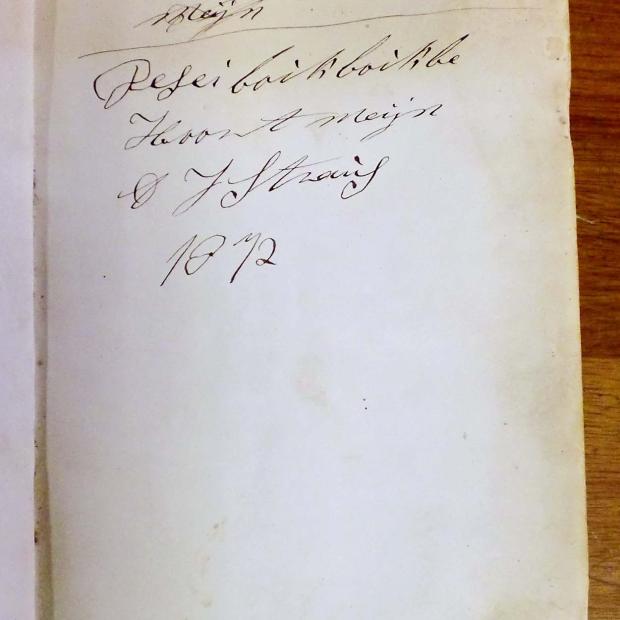 Meijn
Desei boik boik be
Hoort meijn
D J Straus
1872